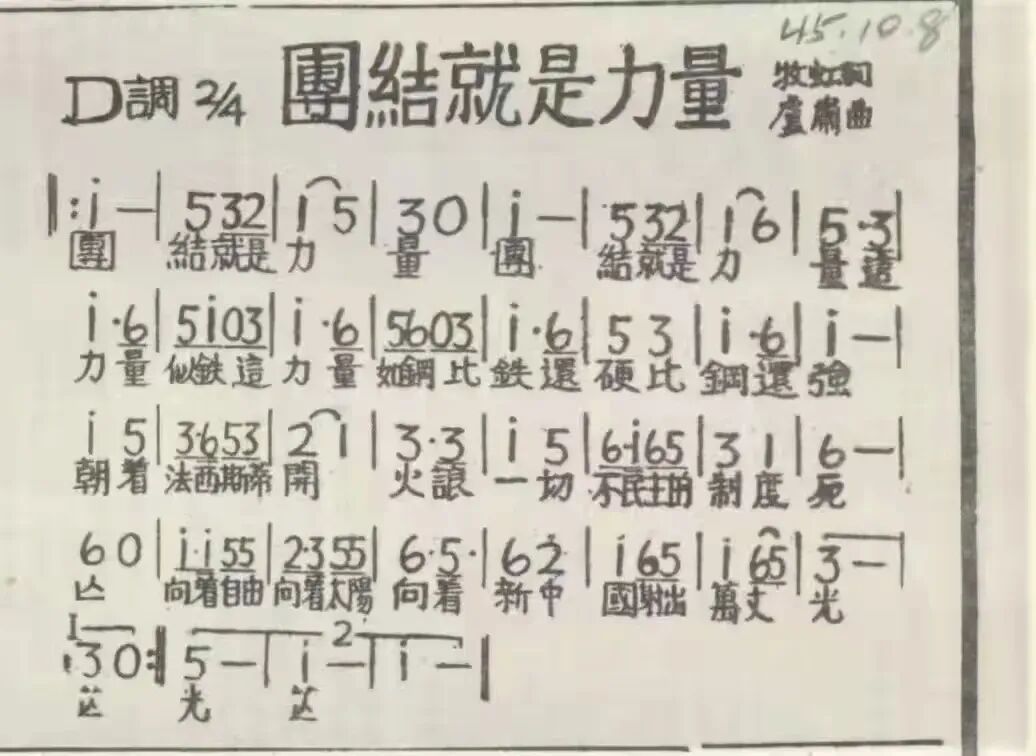 45.10.8
D調 2/4 團結就是力量 牧虹詞
盧肅曲
‖: i — | 5 32 | i 5 | 3 0 | i — | 5 32 | i 6 | 5·3 |
團 結就是 力 量 團 結就是 力 量這
i·6 | 5i03 | i·6 | 5603 | i·6 | 5 3 | i·6 | i — |
力量 似鉄這 力量 如鋼比 鉄還 硬比 鋼還 強
i 5 | 3·653 | 2 1 | 3·3 | i 5 | 6·i65 | 3 1 | 6 — |
朝着 法西斯蒂 開 火讓 一切 不民主的 制度 死
6 0 | i·i55 | 2·355 | 6·5· | 6 2 | i 65 | i 65 | 3 — |
亡 向着自由 向着太陽 向着 新中 國射出 萬丈 光
I 2
:3 0 :‖ 5 — | i — | i — |
芒 光 芒